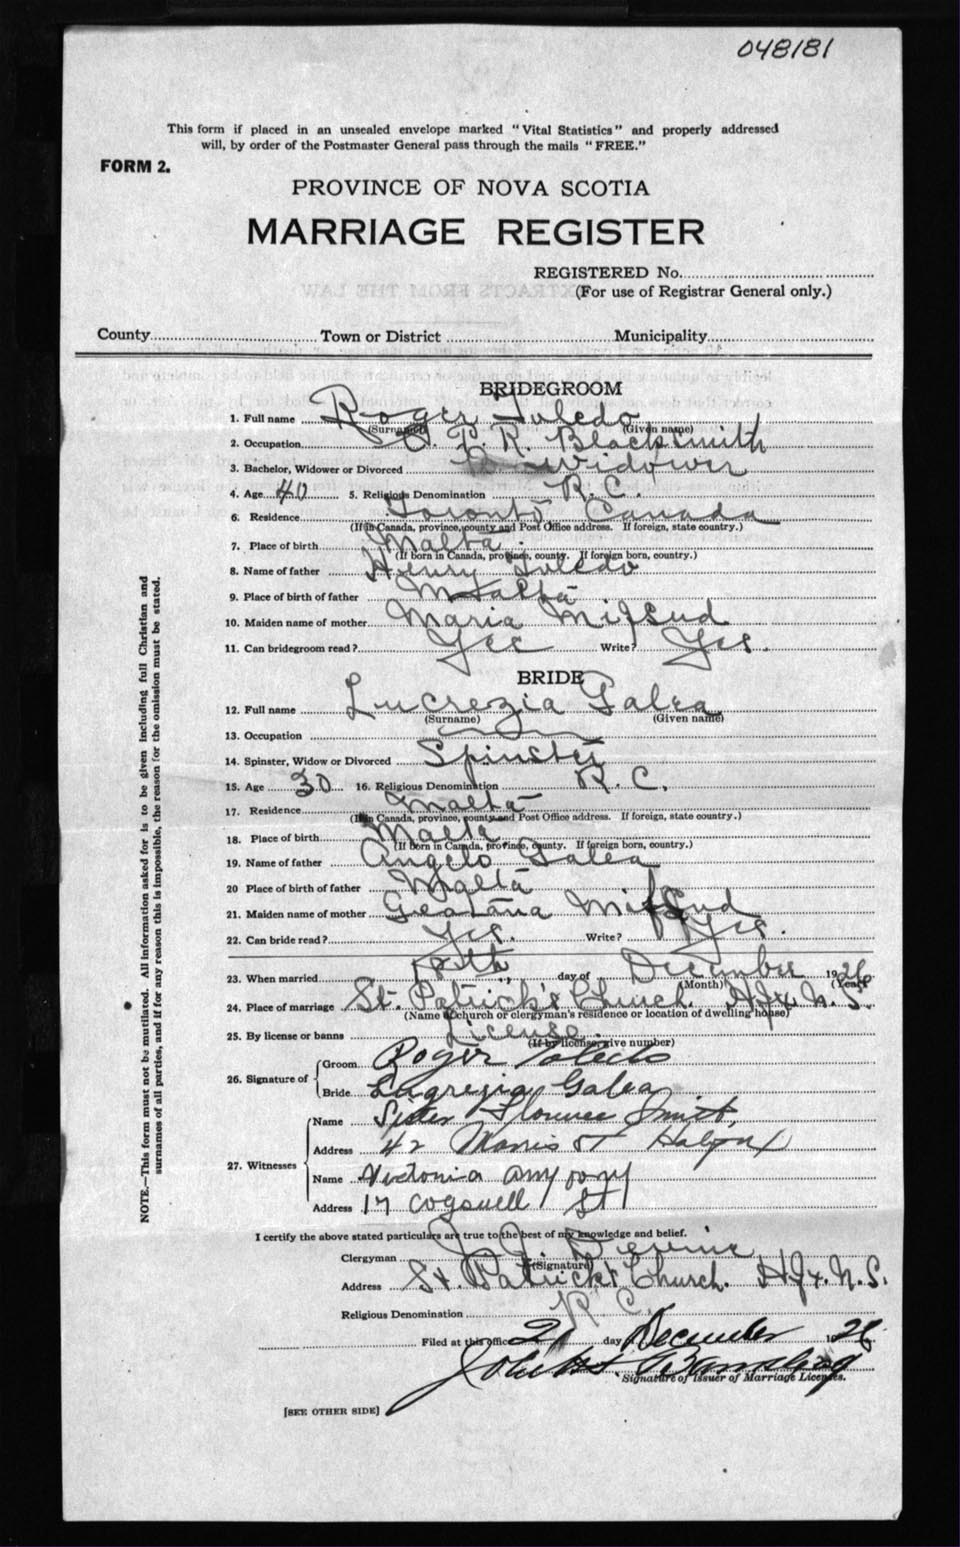 048181
This form if placed in an unsealed envelope marked "Vital Statistics" and properly addressed
will, by order of the Postmaster General pass through the mails "FREE."
FORM 2.
PROVINCE OF NOVA SCOTIA
MARRIAGE REGISTER
REGISTERED No.
(For use of Registrar General only.)
County Town or District Municipality
BRIDEGROOM
1. Full name Roger Toledo
(Surname) (Given name)
2. Occupation C. P. R. Blacksmith
3. Bachelor, Widower or Divorced Widower
4. Age 40 5. Religious Denomination R. C.
6. Residence Toronto Canada
(If in Canada, province, county and Post Office address. If foreign, state country.)
7. Place of birth Malta.
(If born in Canada, province, county. If foreign born, country.)
8. Name of father Henry Toledo
9. Place of birth of father Malta
10. Maiden name of mother Maria Mifsud
11. Can bridegroom read? Yes Write? Yes.
BRIDE
12. Full name Lucrezia Galea
(Surname) (Given name)
13. Occupation
14. Spinster, Widow or Divorced Spinster
15. Age 30 16. Religious Denomination R. C.
17. Residence Malta
(If in Canada, province, county and Post Office address. If foreign, state country.)
18. Place of birth Malta
(If born in Canada, province, county. If foreign born, country.)
19. Name of father Angelo Galea
20 Place of birth of father Malta
21. Maiden name of mother Geatana Mifsud
22. Can bride read? Yes. Write? Yes.
23. When married day of December 1926
(Month) (Year)
24. Place of marriage St. Patrick's Church. Hfx. N. S.
(Name of church or clergyman's residence or location of dwelling house)
25. By license or banns License.
(If by license, give number)
26. Signature of
Groom Roger Toledo
Bride Lugrezia Galea
27. Witnesses
Name Sister Florence Smith,
Address 42 Morris St Halifax
Name
Address 17 Cogswell St
I certify the above stated particulars are true to the best of my knowledge and belief.
Clergyman
(Signature)
Address St. Patrick's Church. Hfx. N. S.
Religious Denomination R. C.
Filed at this office day December 1926
Signature of Issuer of Marriage Licenses.
[SEE OTHER SIDE]
NOTE.—This form must not be mutilated. All information asked for is to be given including full Christian and
surnames of all parties, and if for any reason this is impossible, the reason for the omission must be stated.